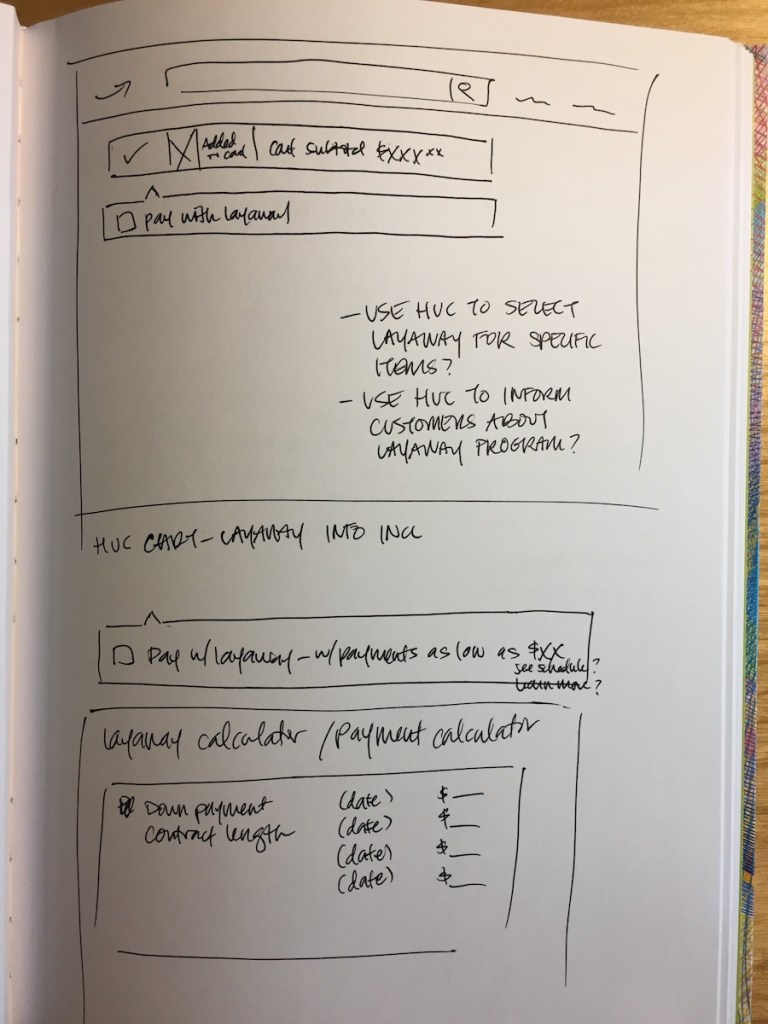 ✓ Added to cart | Cart subtotal $XXX xx
Pay with layaway
— USE HUC TO SELECT
LAYAWAY FOR SPECIFIC
ITEMS?
— USE HUC TO INFORM
CUSTOMERS ABOUT
LAYAWAY PROGRAM?
HUC CART — LAYAWAY INFO INCL
Pay w/ layaway — w/ payments as low as $XX
see schedule?
Learn more?
Layaway calculator / Payment calculator
Down payment (date) $__
contract length (date) $__
(date) $__
(date) $__